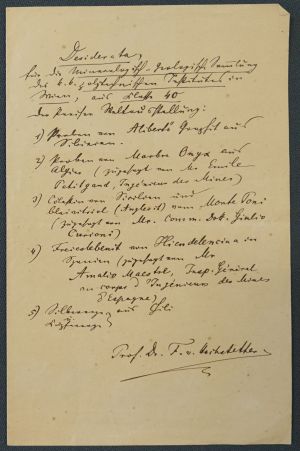 Desiderata
für die Mineralogisch-Geologische Sammlung
des k. k. polytechnischen Institutes in
Wien, aus Klasse 40
der Pariser Weltausstellung:
1) Proben von Aliberts Graphit aus
Sibirien.
2) Proben von Marbre Onyx aus
Algier (zugesagt von Mr Emile
Petitgand, Ingénieur des Mines)
3) von Sardinien und
(Anglesit) vom Monte Poni
(zugesagt von Mr. Comm. Dott. Giulio
Curioni)
4) Freieslebenit von Hiendelencina in
Spanien (zugesagt von Mr
Amalio Maestre, Insp. Général
du corps d'Ingénieurs des Mines
d'Espagne)
5) Silbererze aus Chili
Prof. Dr. F. v. Hochstetter